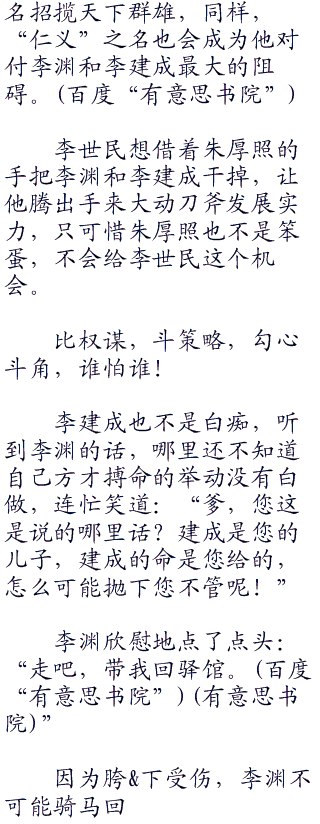 名招揽天下群雄，同样，
“仁义”之名也会成为他对
付李渊和李建成最大的阻
碍。(百度“有意思书院”)
李世民想借着朱厚照的
手把李渊和李建成干掉，让
他腾出手来大动刀斧发展实
力，只可惜朱厚照也不是笨
蛋，不会给李世民这个机
会。
比权谋，斗策略，勾心
斗角，谁怕谁！
李建成也不是白痴，听
到李渊的话，哪里还不知道
自己方才搏命的举动没有白
做，连忙笑道：“爹，您这
是说的哪里话？建成是您的
儿子，建成的命是您给的，
怎么可能抛下您不管呢！”
李渊欣慰地点了点头：
“走吧，带我回驿馆。(百度
“有意思书院”)(有意思书
院)”
因为胯&下受伤，李渊不
可能骑马回